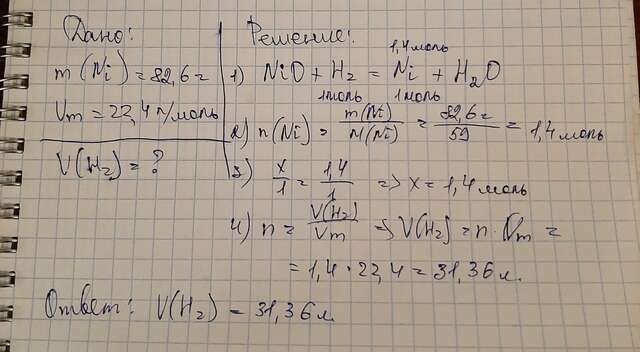 Дано:
m(Ni) = 82,6 г
Vm = 22,4 л/моль
V(H₂) = ?
Решение:
1,4 моль
1) NiO + H₂ = Ni + H₂O
1моль 1моль
2) n(Ni) = m(Ni)/M(Ni) = 82,6 г/59 = 1,4 моль
3) x/1 = 1,4/1 => x = 1,4 моль
4) n = V(H₂)/Vm => V(H₂) = n · Vm =
= 1,4 · 22,4 = 31,36 л.
Ответ: V(H₂) = 31,36 л